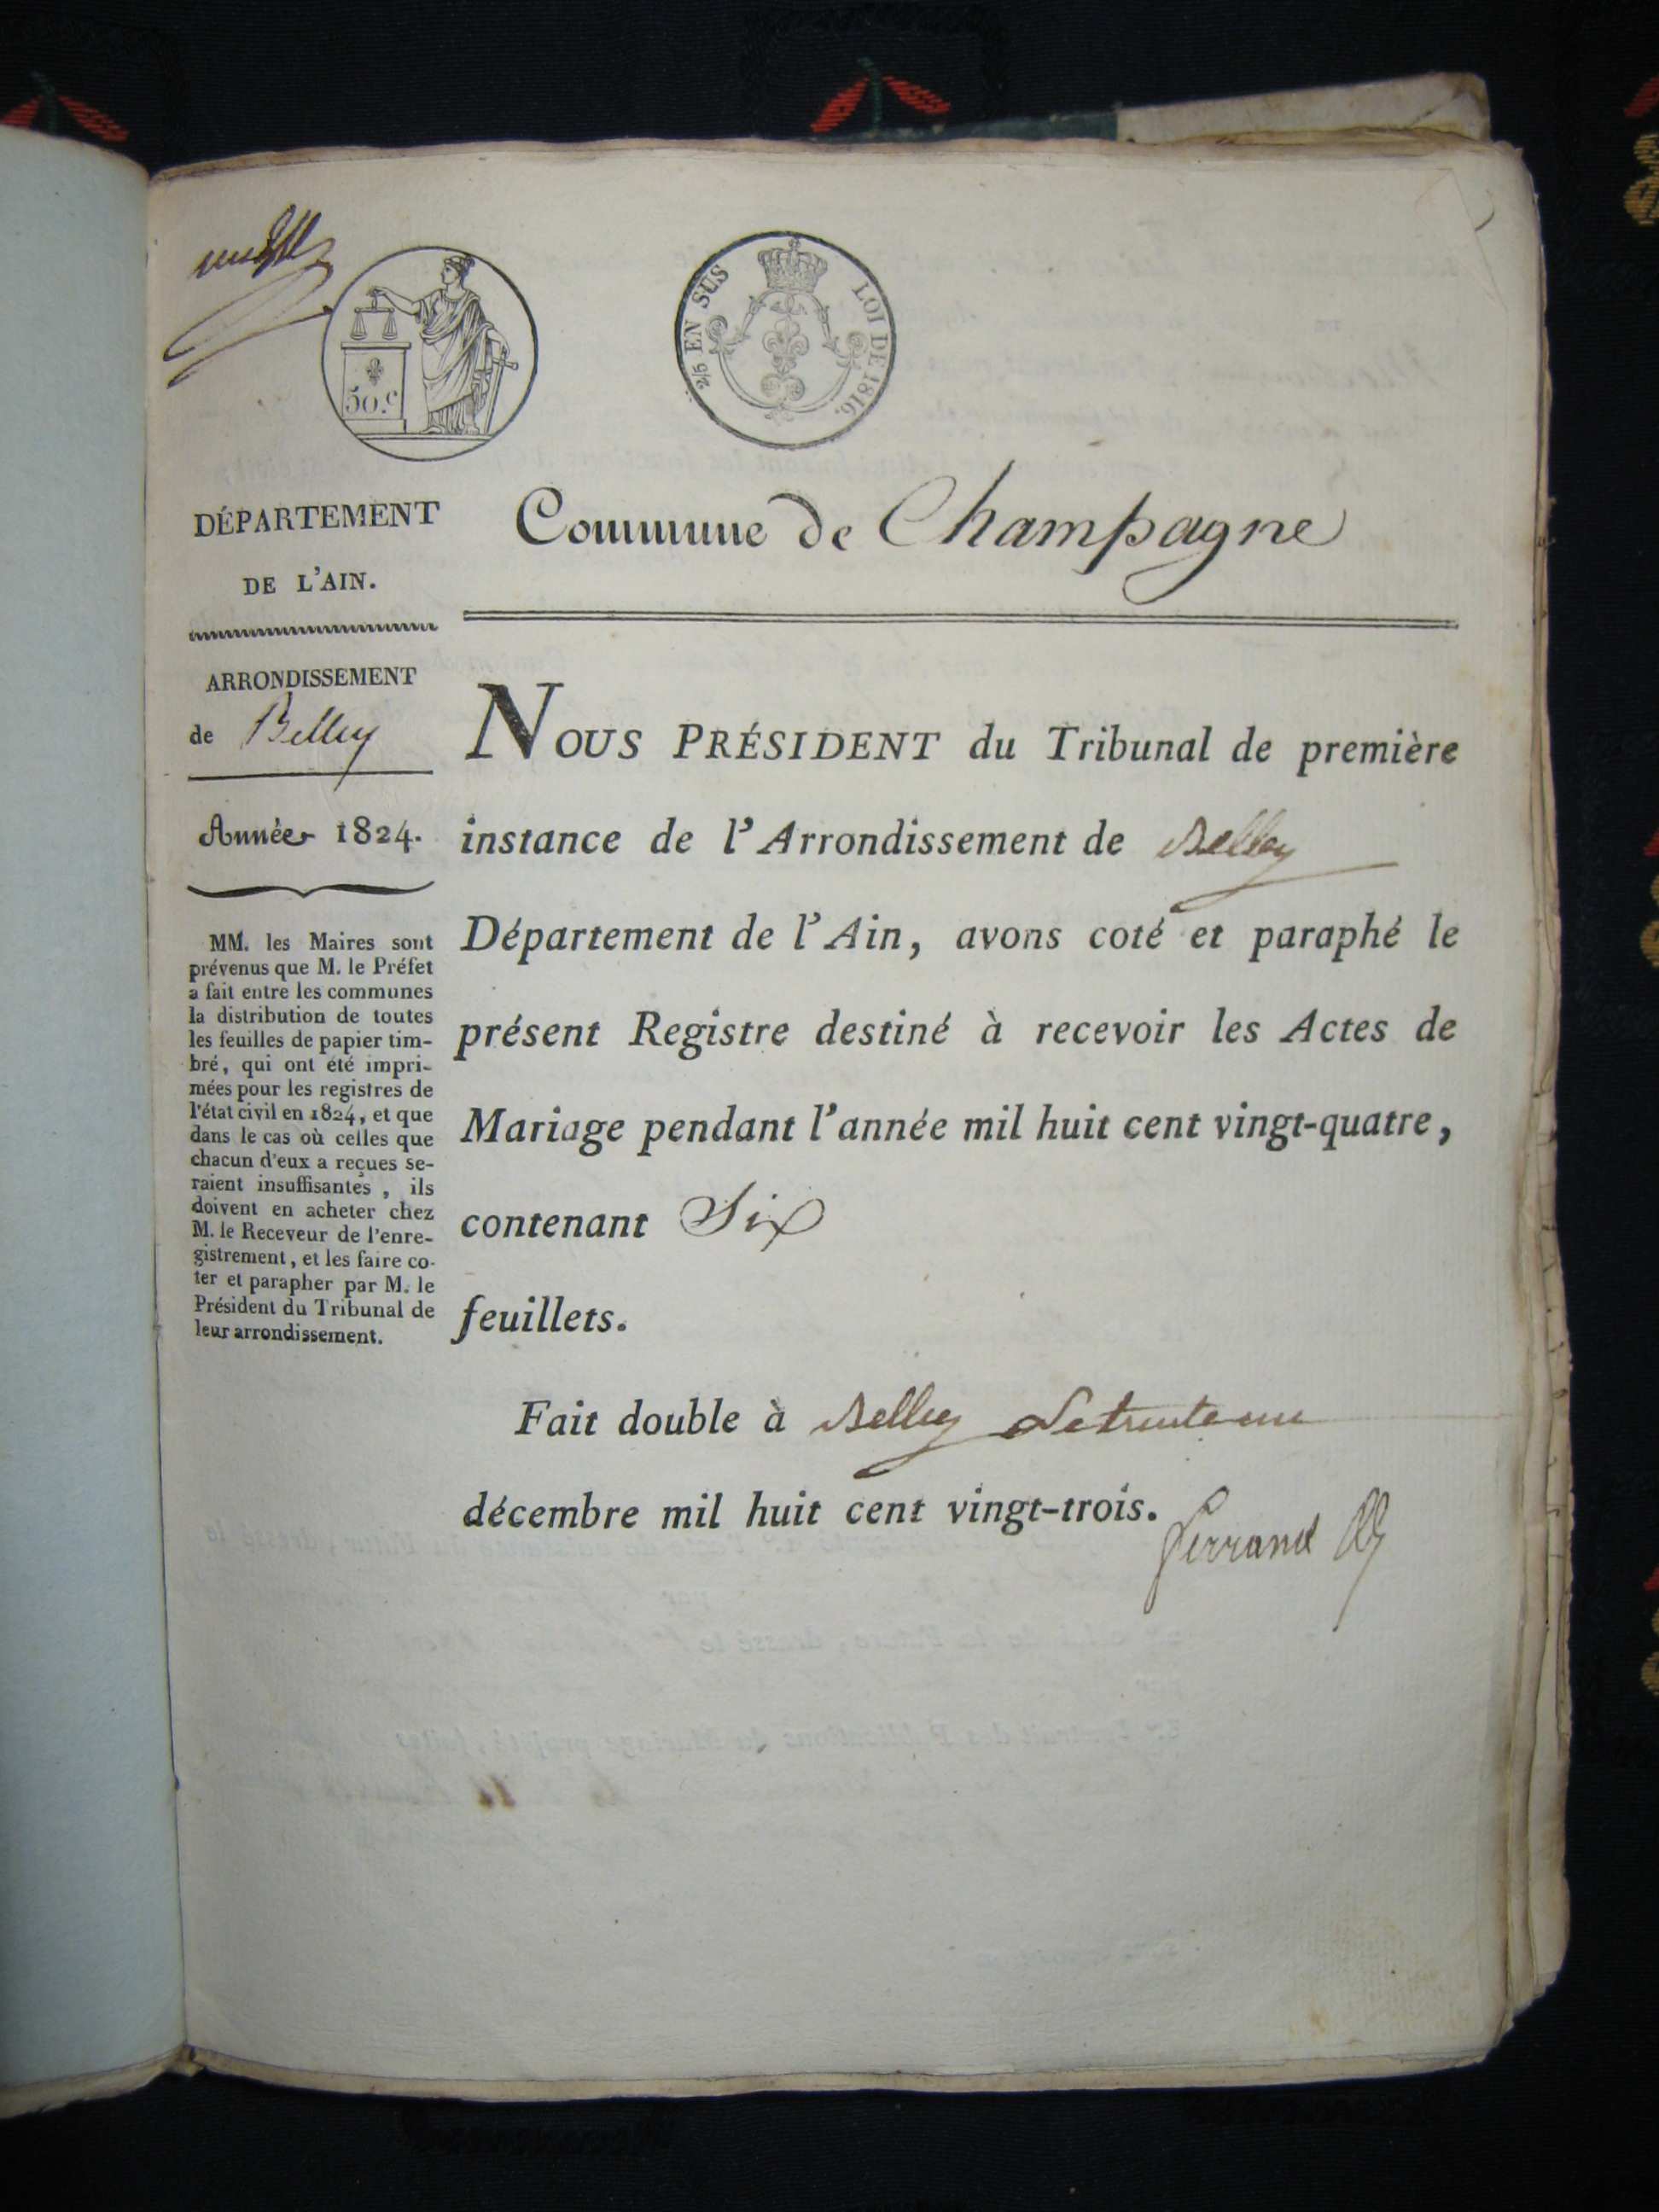 50.c
2/5 EN SUS LOI DE 1816.
DÉPARTEMENT
DE L'AIN.
ARRONDISSEMENT
de Belley
Année 1824.
MM. les Maires sont
prévenus que M. le Préfet
a fait entre les communes
la distribution de toutes
les feuilles de papier tim-
bré, qui ont été impri-
mées pour les registres de
l'état civil en 1824, et que
dans le cas où celles que
chacun d'eux a reçues se-
raient insuffisantes, ils
doivent en acheter chez
M. le Receveur de l'enre-
gistrement, et les faire co-
ter et parapher par M. le
Président du Tribunal de
leur arrondissement.
Commune de Champagne
NOUS PRÉSIDENT du Tribunal de première
instance de l'Arrondissement de Belley
Département de l'Ain, avons coté et paraphé le
présent Registre destiné à recevoir les Actes de
Mariage pendant l'année mil huit cent vingt-quatre,
contenant Six
feuillets.
Fait double à Belley le trente un
décembre mil huit cent vingt-trois.